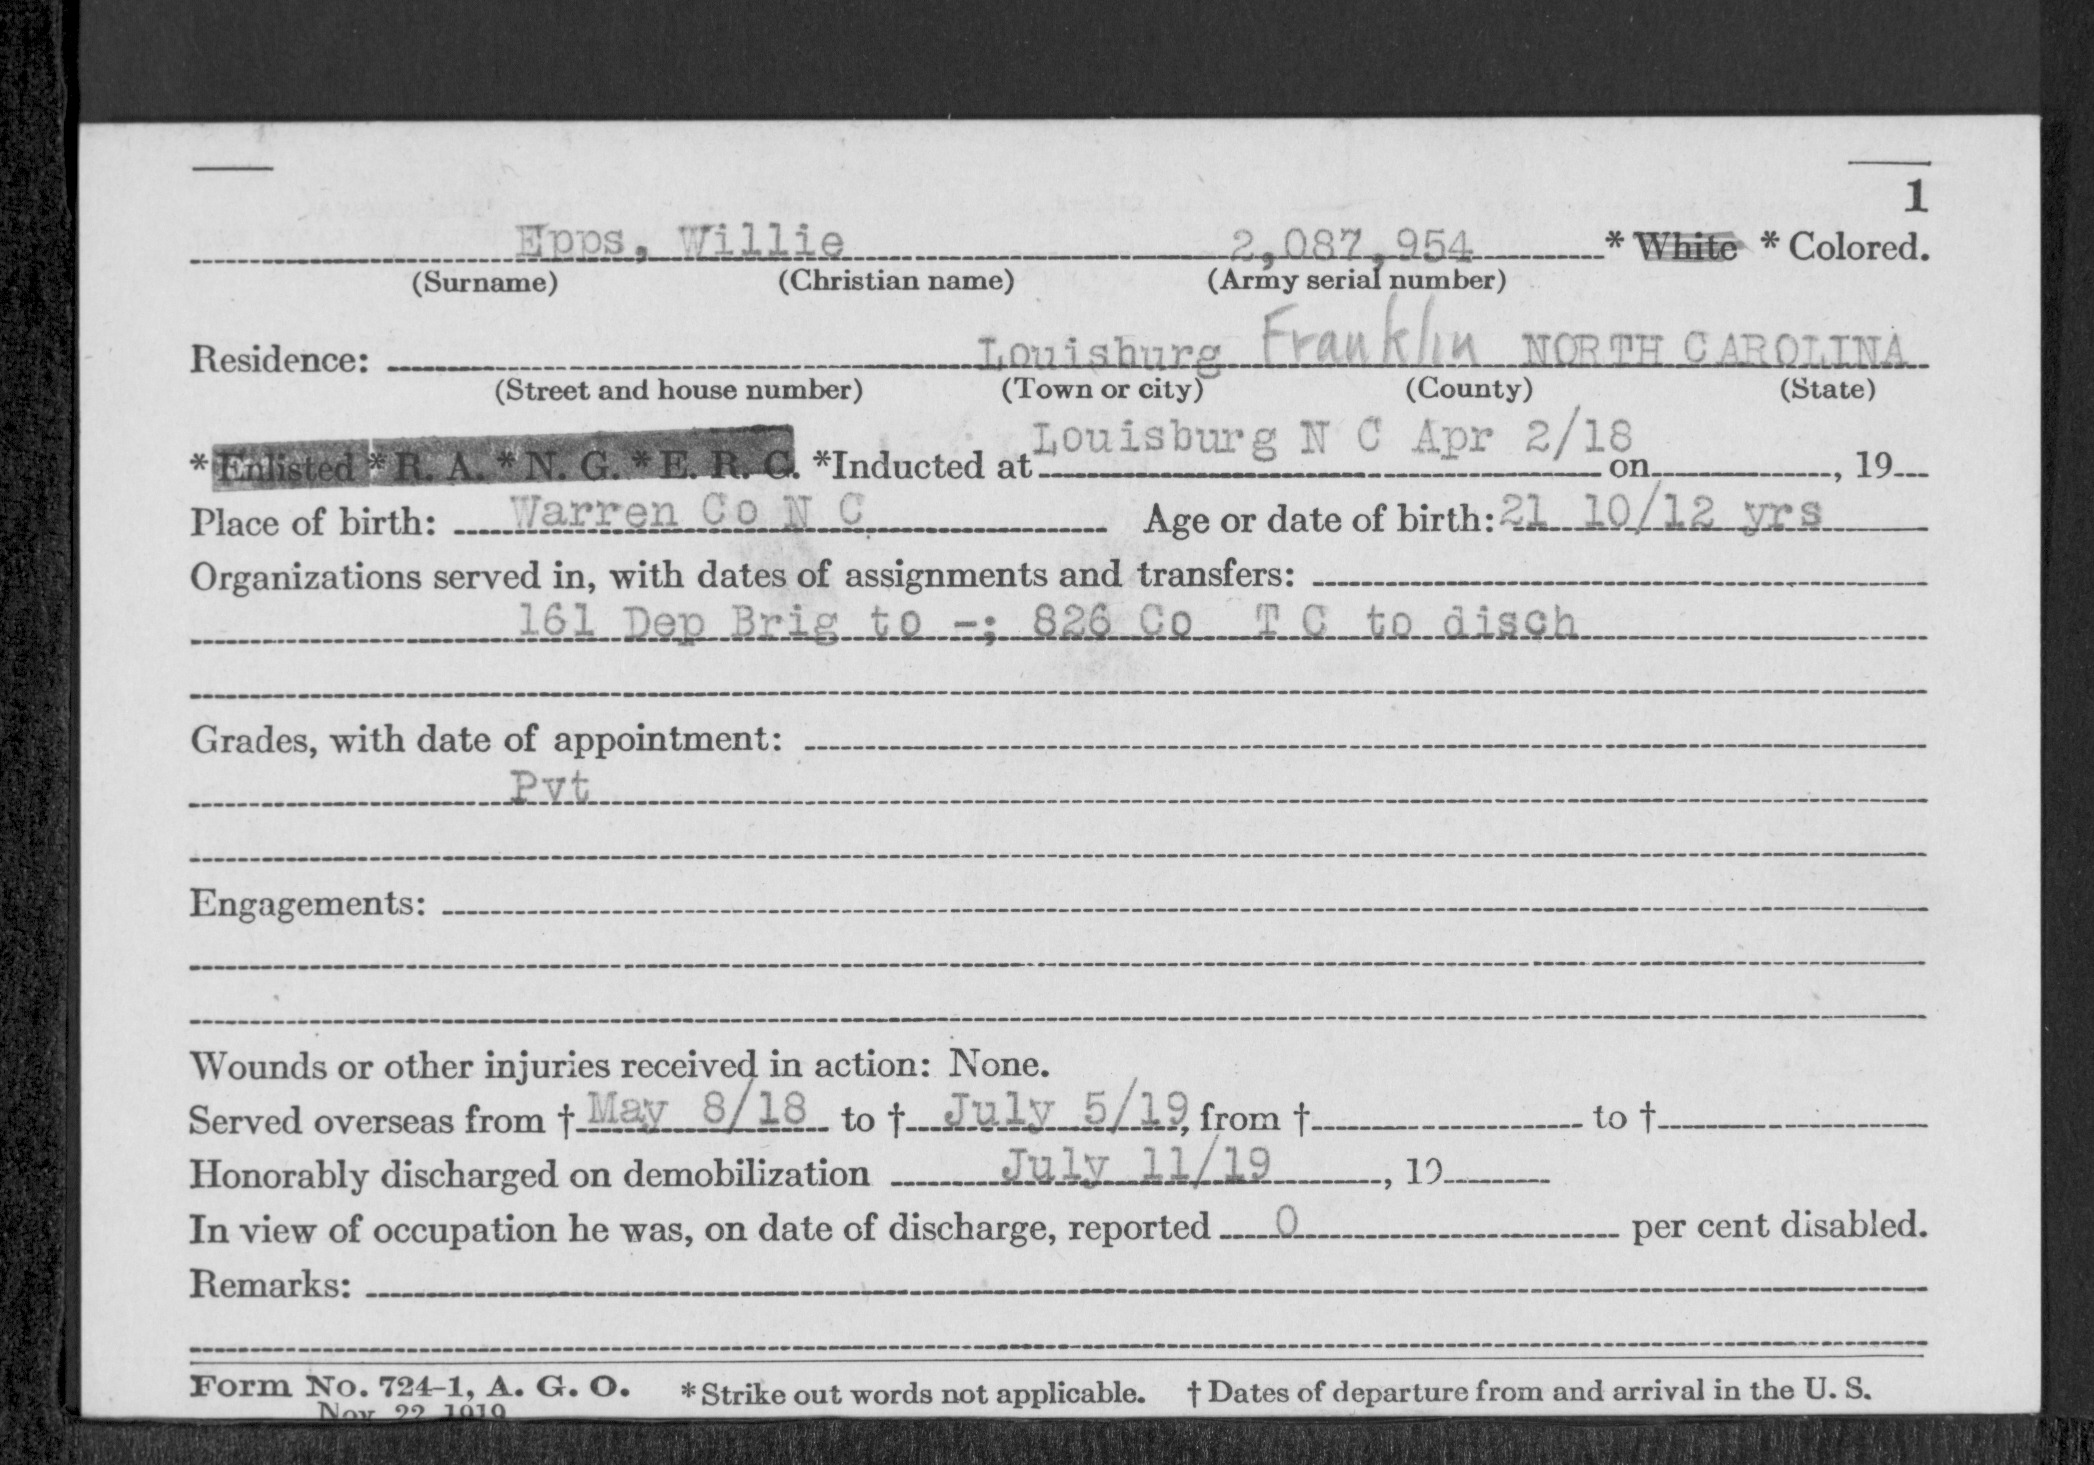 1
Epps, Willie 2,087,954 * White * Colored.
(Surname) (Christian name) (Army serial number)
Residence: Louisburg Franklin NORTH CAROLINA
(Street and house number) (Town or city) (County) (State)
* Enlisted * R. A. * N. G. * E. R. C. *Inducted at Louisburg N C Apr 2/18 on , 19
Place of birth: Warren Co N C Age or date of birth: 21 10/12 yrs
Organizations served in, with dates of assignments and transfers:
161 Dep Brig to -; 826 Co T C to disch
Grades, with date of appointment:
Pvt
Engagements:
Wounds or other injuries received in action: None.
Served overseas from † May 8/18 to † July 5/19, from † to †
Honorably discharged on demobilization July 11/19 , 19
In view of occupation he was, on date of discharge, reported 0 per cent disabled.
Remarks:
Form No. 724-1, A. G. O. * Strike out words not applicable. † Dates of departure from and arrival in the U. S.
Nov. 22, 1919